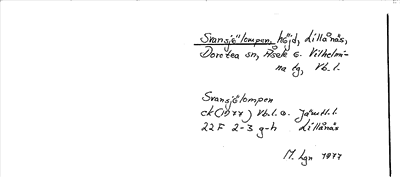 Svansjölompen, höjd, Lillånäs,
Dorotea sn, Åsele o. Vilhelmi-
na tg, Vb. l.
Svansjölompen
ek (1977) Vb. l. o. Jämtl. l.
22 F 2-3 g-h Lillånäs
M. Lgn 1977